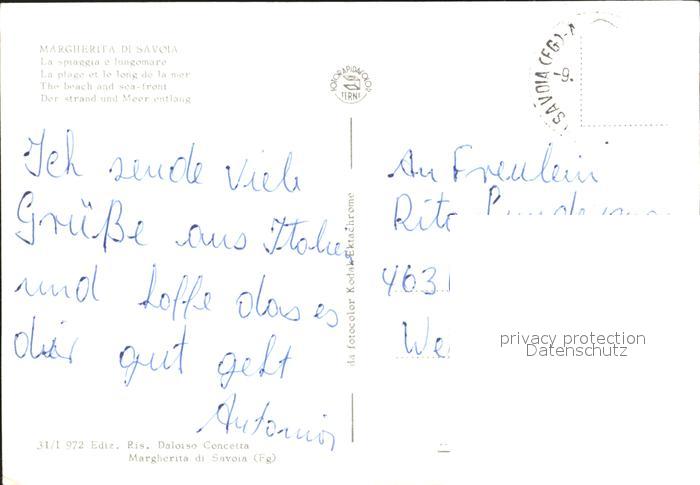 MARGHERITA DI SAVOIA
La spiaggia e lungomare
La plage et le long de la mer
The beach and sea-front
Der strand und Meer entlang
FOTORAPIDACOLOR
TERNI
SAVOIA (FG)
-9.
Ich sende viele
Grüße aus Italien
und hoffe das es
dir gut geht
Antonio
An Freulein
Rita
463
We
da fotocolor Kodak Ektachrome
privacy protection
Datenschutz
31/1 972 Ediz. Ris. Daloiso Concetta
Margherita di Savoia (Fg)